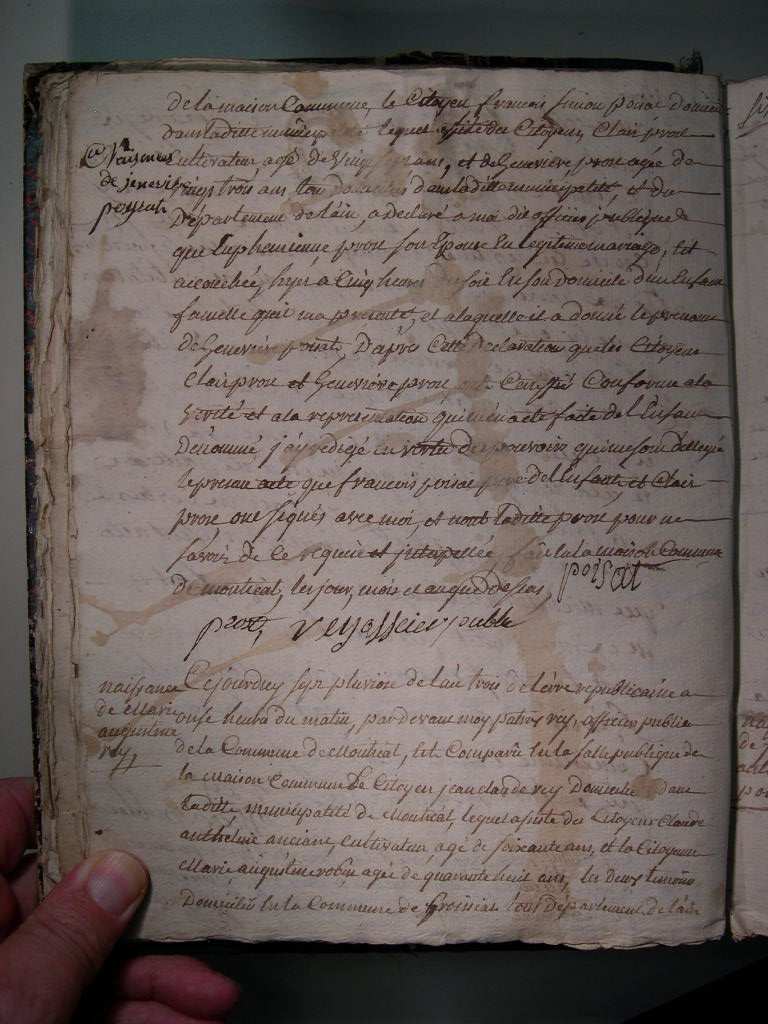 de la maison Commune, le Citoyen francois simon poisat domicilié
dans laditte municipalité lequel assisté des Citoyens Clair prost
Naissance
de jenevieve
poysat
Cultivateur agé de vingt sept ans, et de Genevieve prost agée de
vingt trois ans tous domiciliés dans laditte municipalité, et du
Département de l'ain, a declaré a moi dit officier publique
que Euphemienne prost son Epouse En legitime mariage, Est
accouchée, hyer a Cinq heures du soir En son domicile d'un Enfant
femelle qu'il m'a presenté, et alaquelle il a donné le prenom
de Genevieve poisat, D'apres Cette declaration que les Citoyens
Clair prost et Genevieve prost ont Conforme a la
verité et a la representation qui m'en a eté faite de l'Enfant
Denommé j'ay redigé en vertu des pouvoirs qui me sont delegué
le present acte que francois poisat pere de l'Enfant, et Clair
prost ont signés avec moi, et non laditte prost pour ne
savoir de ce requise et interpellée, fait En la maison Commune
de montreal, les jour, mois et an que dessus, poisat
prost, rey officier public
naissance
de Marie
augustine
rey
Cejourduy sept pluviose de l'an trois de l'ere republicaine a
onse heures du matin, par devant moy rey, officier public
de la Commune de Montreal, Est Comparu En la salle publique de
la maison Commune Le Citoyen jean claude rey Domicilié dans
laditte municipalité de Montreal, lequel assisté des Citoyens Claude
anthelme anciant, cultivateur, agé de soixante ans, et la Citoyenne
Marie augustine robin agée de quarante huit ans, les deux temoins
Domiciliés En la Commune de tous Departement de l'ain